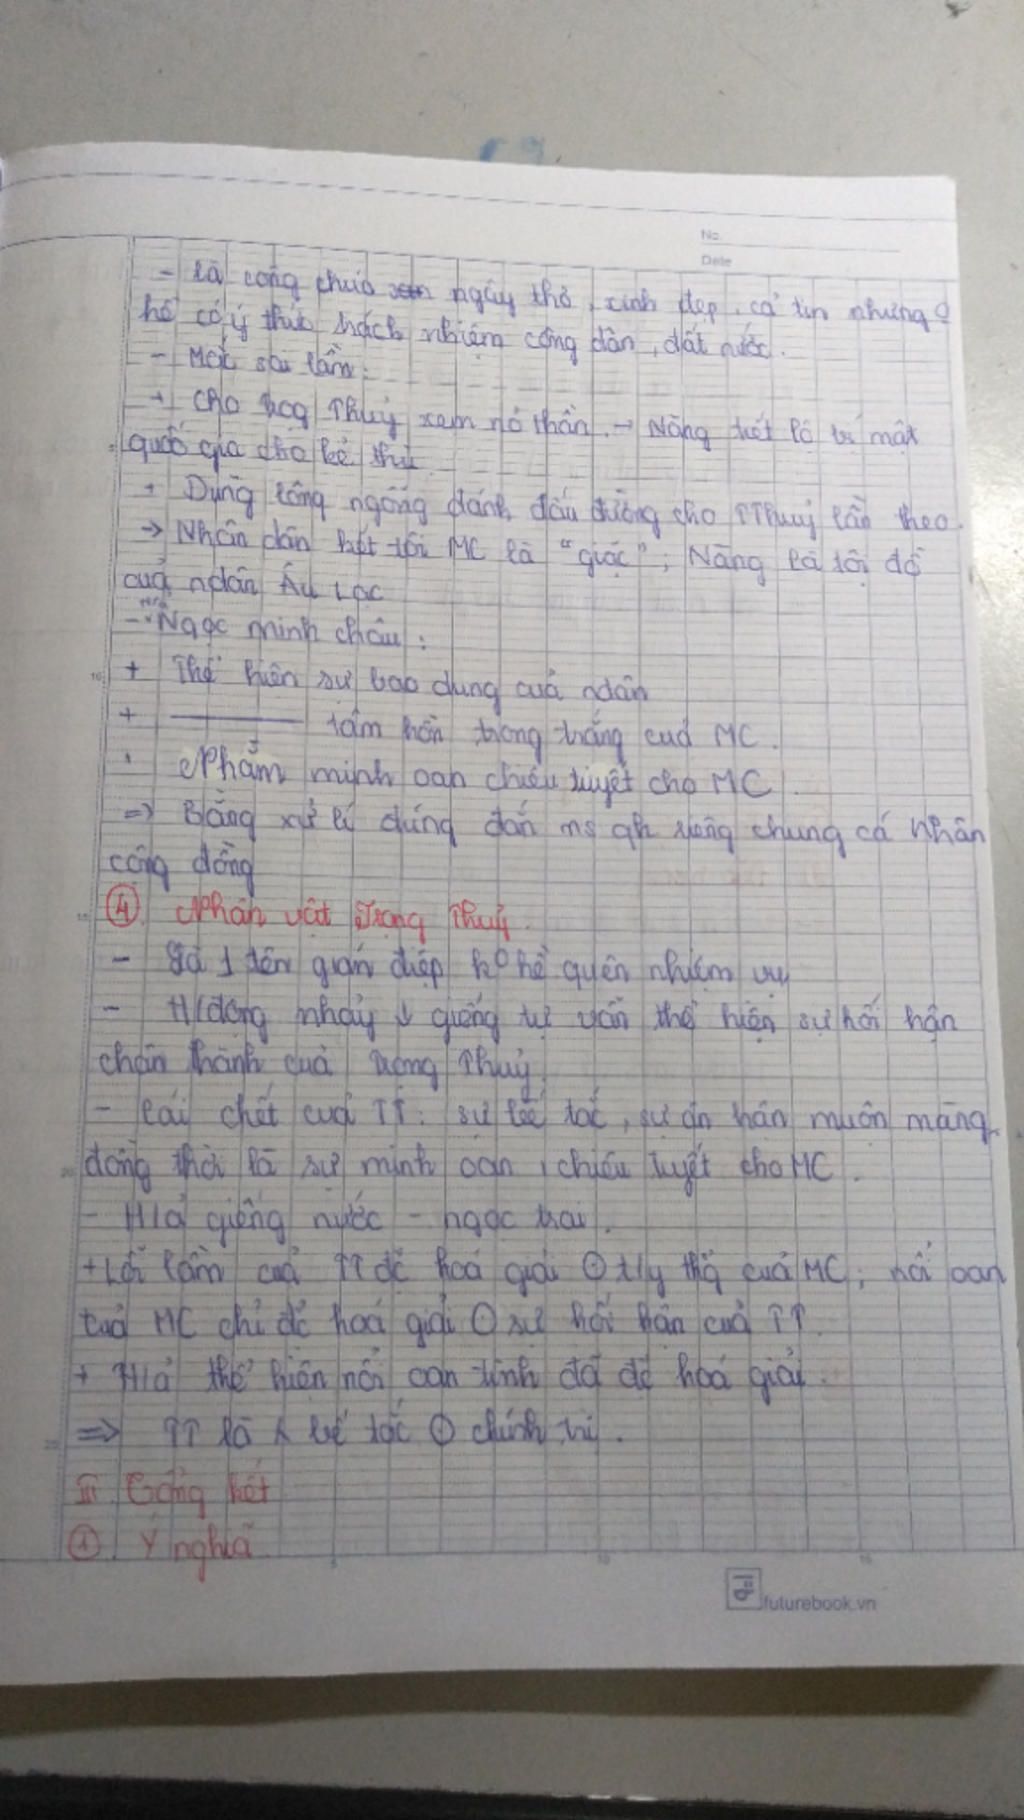 No.
Date
- là công chúa ngây thơ, xinh đẹp, cả tin nhưng 0
hề có ý thức trách nhiệm công dân, đất nước.
- Mắc sai lầm:
+ Cho Trọng Thuỷ xem nỏ thần → Nàng tiết lộ bí mật
quốc gia cho kẻ thù.
+ Dùng lông ngỗng đánh dấu đường cho TThuỷ lần theo.
→ Nhân dân kết tội MC là "giặc"; Nàng là tội đồ
của ndân Âu Lạc
- Ngọc minh châu:
+ Thể hiện sự bao dung của ndân
+ ——— tâm hồn trong trắng của MC.
Nhằm minh oan chiêu tuyết cho MC.
=> Bằng xử lí đúng đắn mq qh riêng chung cá nhân
cộng đồng
④. Nhân vật Trọng Thuỷ.
- Là 1 tên gián điệp k0 hề quên nhiệm vụ
- H/động nhảy ↓ giếng tự vẫn thể hiện sự hối hận
chân thành của Trọng Thuỷ.
- Cái chết của TT: sự bế tắc, sự ân hận muộn màng
đồng thời là sự minh oan, chiêu tuyết cho MC.
- H/ả giếng nước - ngọc trai.
+ Lỗi lầm của TT đc hoá giải t/y của MC; nỗi oan
của MC chỉ đc hoá giải sự hối hận của TT.
+ H/ả thể hiện nỗi oan tình đã đc hoá giải.
=> TT là bế tắc chính trị.
III. Tổng kết
①. Ý nghĩa
5 10 15
futurebook.vn